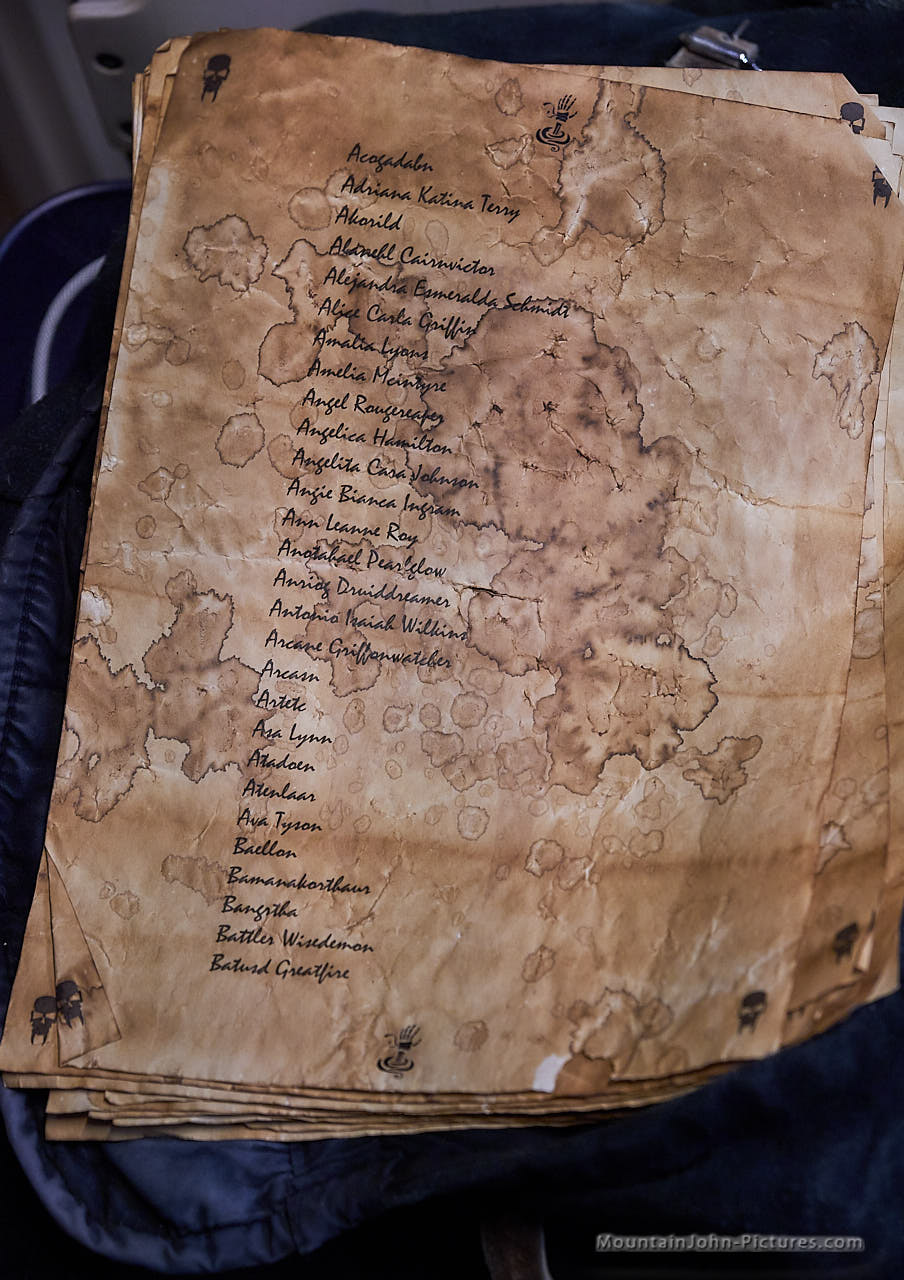 Acogadabn
Adriana Katina Terry
Akorild
Aldnehl Cairnvictor
Alejandra Esmeralda Schmidt
Alice Carla Griffin
Amalia Lyons
Amelia Mcintyre
Angel Rougereaper
Angelica Hamilton
Angelita Casa Johnson
Angie Bianca Ingram
Ann Leanne Roy
Anotahael Pearlglow
Anriog Druiddreamer
Antonio Isaiah Wilkins
Arcane Griffonwatcher
Arcasn
Artetc
Asa Lynn
Atadoen
Atenlaar
Ava Tyson
Baellon
Bamanakorthaur
Bangrtha
Battler Wisedemon
Batusd Greatfire
MountainJohn-Pictures.com